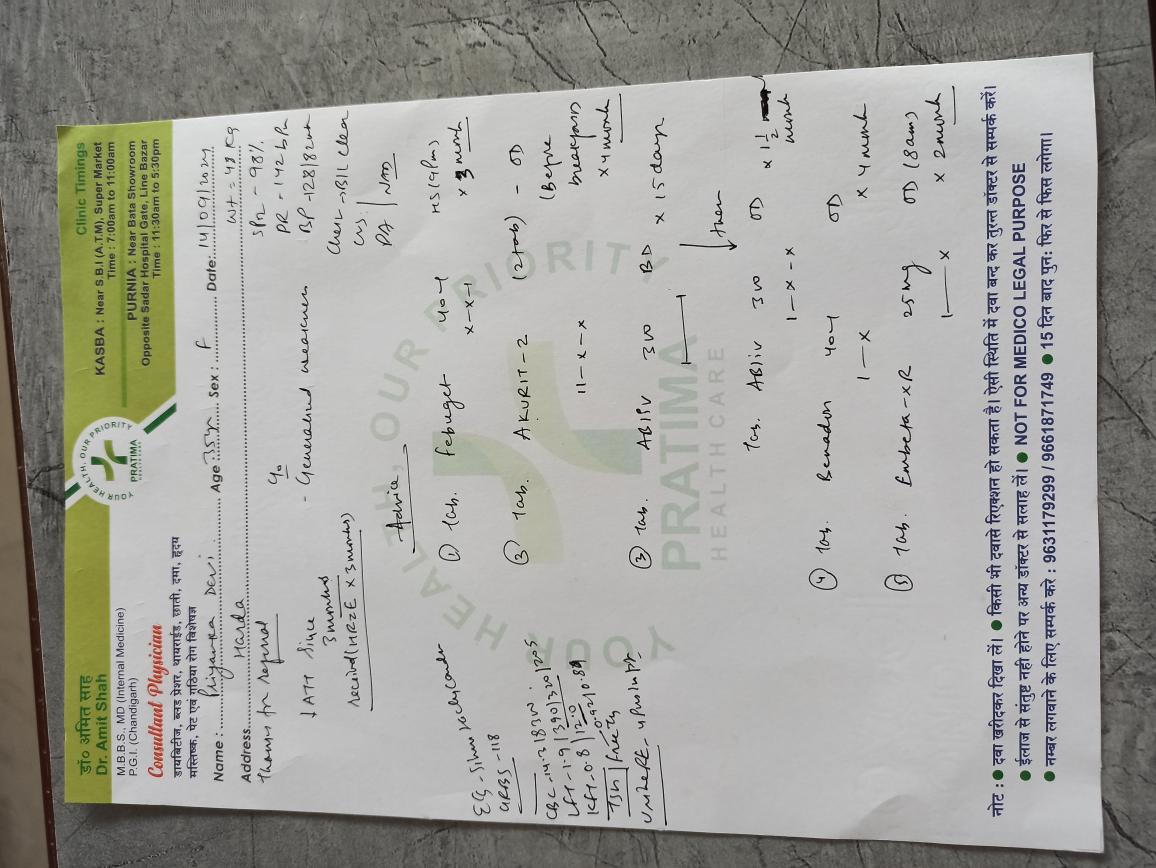 डॉ० अमित साह
Dr. Amit Shah
M.B.B.S., MD (Internal Medicine)
P.G.I. (Chandigarh)
Consultant Physician
डायबिटीज, ब्लड प्रेशर, थायराईड, छाती, दमा, हृदय
मस्तिष्क, पेट एवं गठिया रोग विशेषज्ञ
YOUR HEALTH, OUR PRIORITY
PRATIMA
Clinic Timings
KASBA : Near S.B.I (A.T.M), Super Market
Time : 7:00am to 11:00am
PURNIA : Near Bata Showroom
Opposite Sadar Hospital Gate, Line Bazar
Time : 11:30am to 5:30pm
Name : Priyanka Devi Age 35yr Sex : F Date: 14/09/2024
Address. Harda
Thanks for referral
Wt = 48 kg
SPO2 - 98%
PR - 142 bpm
BP - 128/82
Chest → B/L clear
CVS
PA | NAD
c/o
- Generalised weakness
↓ ATT since
3 months
received (HRZE x 3 months)
Advice
① Tab. Febuget 40 - 1 HS (9pm)
x - x - 1 x 3 month
② Tab. AKURIT - 2 (2 tab) - OD
11 - x - x (Before
breakfast)
x 4 month
③ Tab. 300 BD x 15 days
1 — 1
↓ then
Tab. 300 OD x 1½
month
1 - x - x
④ Tab. Benadon 40 - 1 OD
1 - x x 4 month
⑤ Tab. Embeta - XR 25mg OD (8am)
1 — x x 2 month
ECG - Sinus tachycardia
GRBS - 118
CBC - 14.2 / 8300
LFT - 1.9 / 390 / 320 / 205
KFT - 0.8 / 12.0
TSH / free T4
Urine RE
YOUR HEALTH, OUR PRIORITY
PRATIMA
HEALTHCARE
नोट : ● दवा खरीदकर दिखा लें। ● किसी भी दवासे रिएक्शन हो सकता है। ऐसी स्थिति में दवा बन्द कर तुरन्त डॉक्टर से सम्पर्क करें।
● ईलाज से संतुष्ट नही होने पर अन्य डॉक्टर से सलाह लें। ● NOT FOR MEDICO LEGAL PURPOSE
● नम्बर लगवाने के लिए सम्पर्क करे : 9631179299 / 9661871749 ● 15 दिन बाद पुन: फिर से फिस लगेगा।